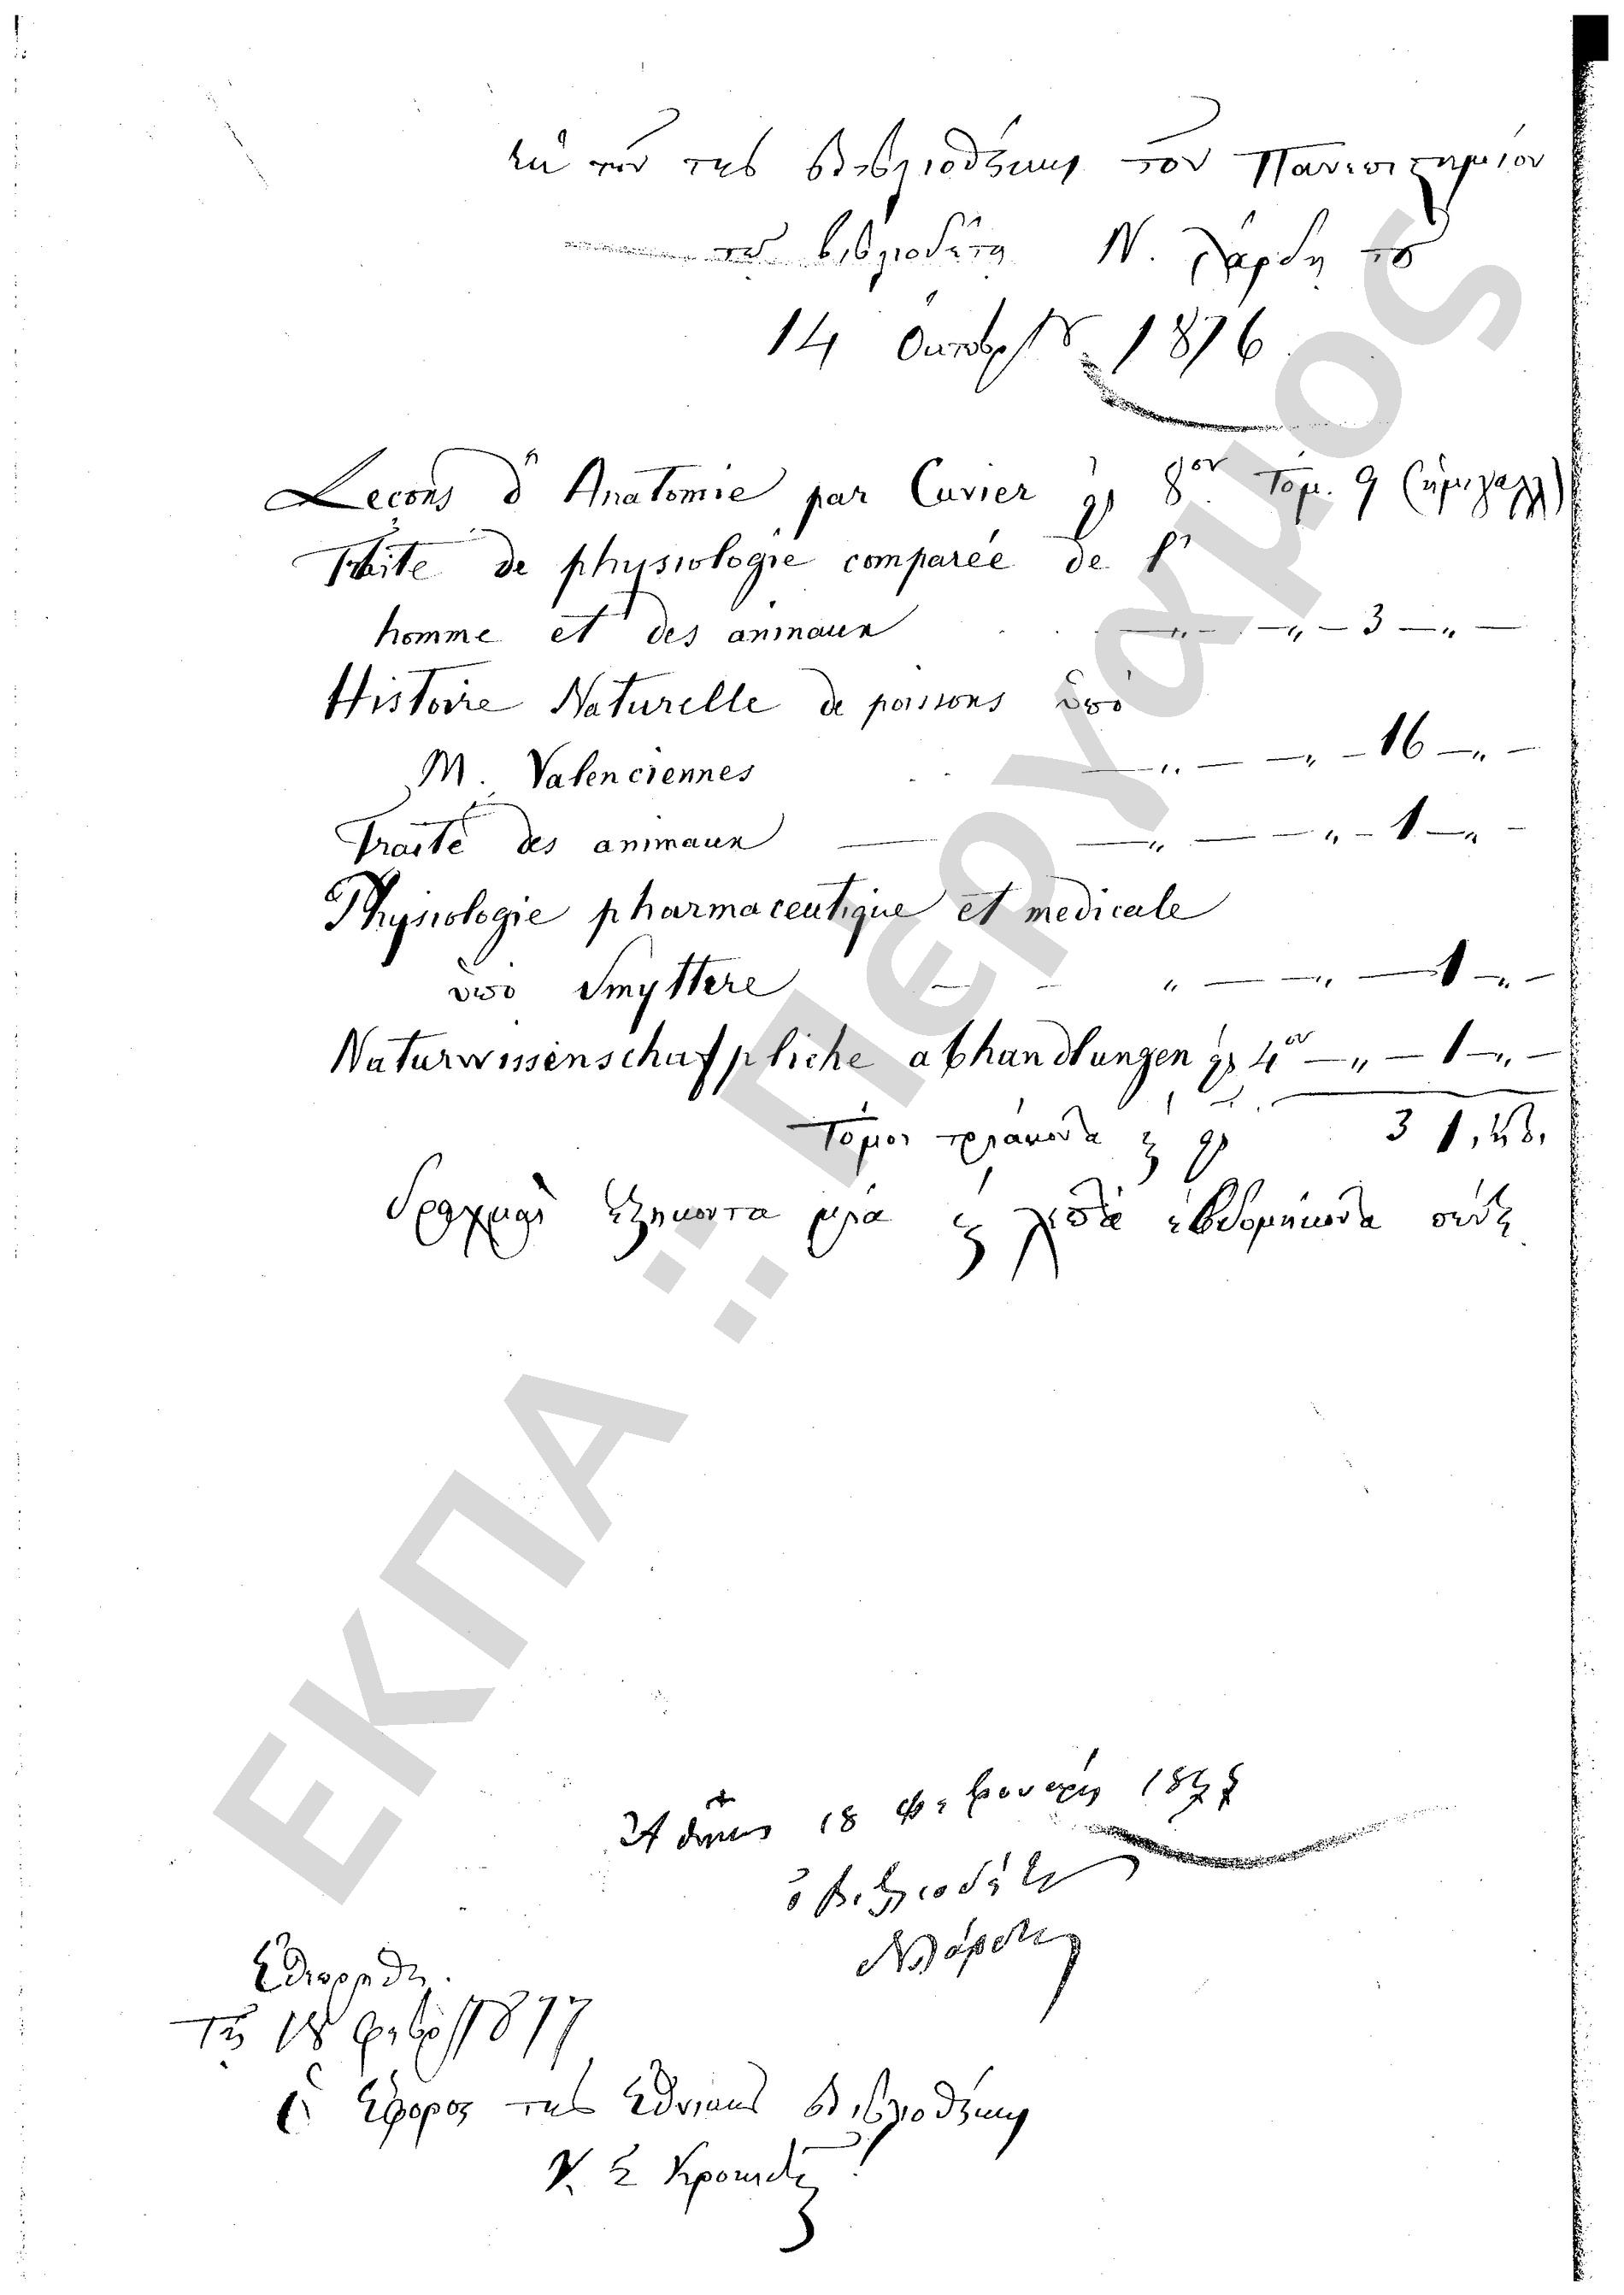 διὰ τὸν τῆς Βιβλιοθήκης τοῦ Πανεπιστημίου
τοῦ βιβλιοδέτῃ Ν. Γάρδη τῇ
14 Ὀκτωβρ/ου 1876
Lecons d' Anatomie par Cuvier εἰς 8ον Τομ. 9
Traite de physiologie comparée de l'
homme et des animaux — „ — „ — 3 — „ —
Histoire Naturelle de poissons ὑπὸ
M. Valenciennes — „ — „ — 16 — „ —
Traité des animaux — — „ — — „ — 1 — „ —
Physiologie pharmaceutique et medicale
ὑπὸ Smyttere — - „ — — „ — 1 — „ —
Naturwissenschafpliche abhandlungen εἰς 4ον — „ — 1 — „ —
Τόμοι τριάκοντα 31
δραχμαὶ ἑξήκοντα μία καὶ λεπτὰ ἑβδομήκοντα πέντε
Ἀθῆναι 18 Φεβρουαρίου 1877
ὁ βιβλιοδέτης
Ἐθεωρήθη.
Τῇ 18 Φεβρ/1877
Ὁ Ἔφορος τῆς Ἐθνικῆς Βιβλιοθήκης
ΕΚΠΑ :: Πέργαμος